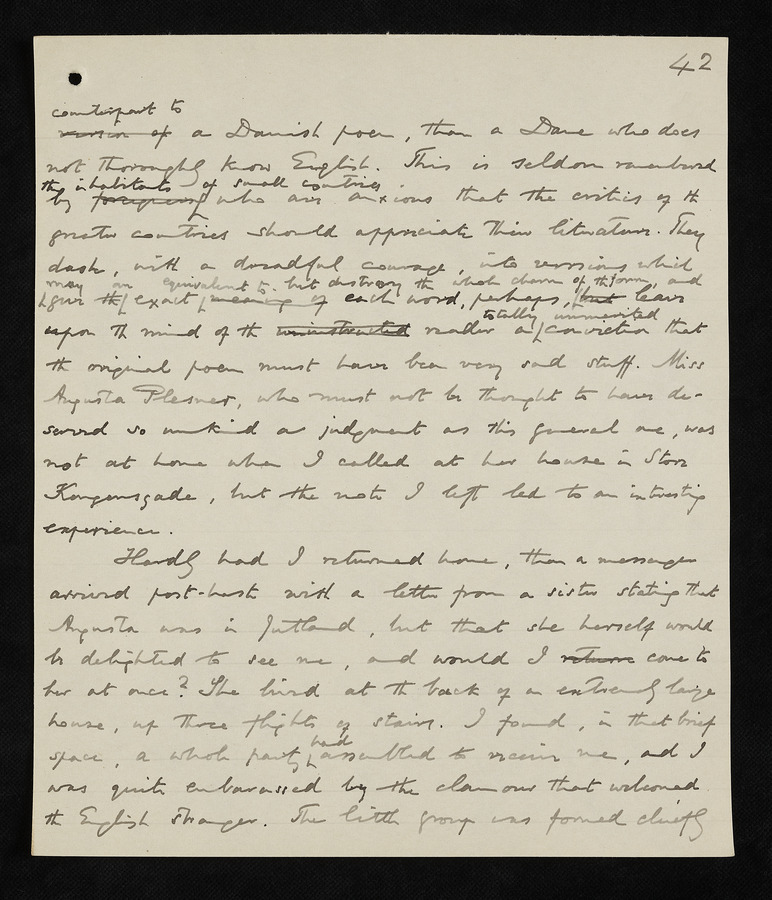 42
counterpart to
version of a Danish poem, than a Dane who does
not thoroughly know English. This is seldom remembered
the inhabitants of small countries
by foreigners who are anxious that the critics of the
greater countries should appreciate their literature. They
dash, with a dreadful courage, into versions which
may an equivalent to but destroy the whole charm of the form, and
give the exact meaning of each word, perhaps, but leave
totally unmerited
upon the mind of the uninstructed reader a conviction that
the original poem must have been very sad stuff. Miss
Augusta Plesner, who must not be thought to have de-
served so unkind a judgment as this general one, was
not at home when I called at her house in Store
Kongensgade, but the note I left led to an interesting
experience.
Hardly had I returned home, than a messenger
arrived post-haste with a letter from a sister stating that
Augusta was in Jutland, but that she herself would
be delighted to see me, and would I return come to
her at once? She lived at the back of an extremely large
house, up three flights of stairs. I found, in that brief
had
space, a whole party assembled to receive me, and I
was quite embarassed by the clamour that welcomed
the English stranger. The little group was formed chiefly